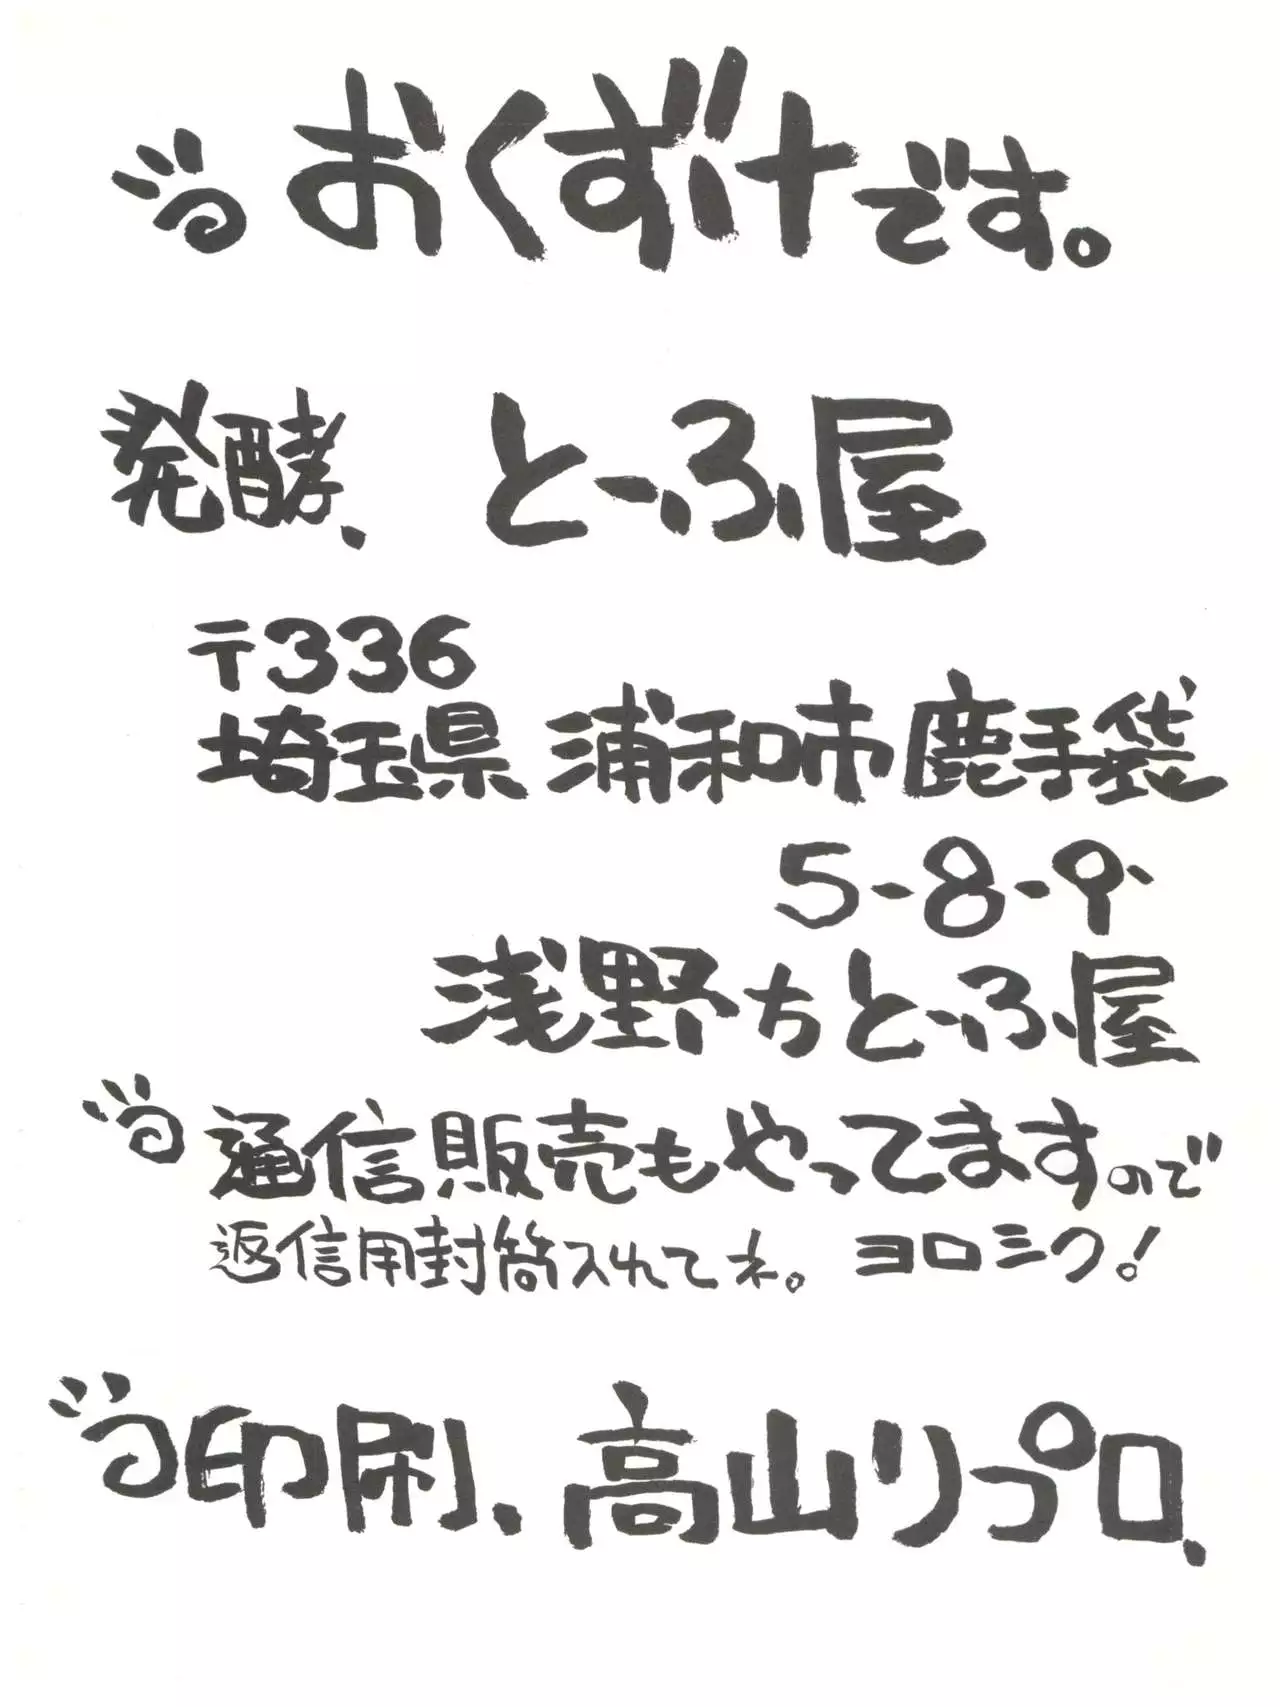 おくずけです。
発酵、とーふ屋
〒336
埼玉県 浦和市鹿手袋
5-8-9
浅野方とーふ屋
通信販売もやってますので
返信用封筒入れてネ。ヨロシク!
印刷、高山リプロ、